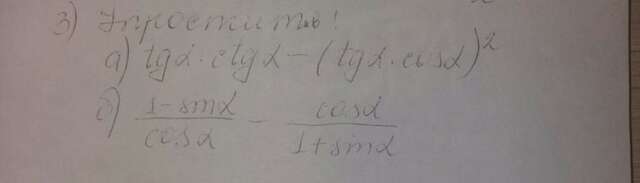 3) Упростить!
а) tgα · ctgα − (tgα · cosα)²
б) (1 − sinα)/cosα − cosα/(1 + sinα)